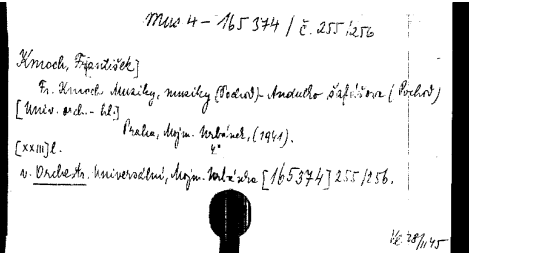 Mus 4 - 165 374 / č. 255/256
Kmoch, Fr[antišek]
Fr. Kmoch Muziky, muziky (Pochod) - Andulko šafářova (Pochod)
[Univ. orch. - hl.]
Praha, Mojm. Urbánek, (1941).
[XXIII] l. 4°
v. Orchestr. Universální, Mojm. Urbánka [165374] 255/256.
28/II 45